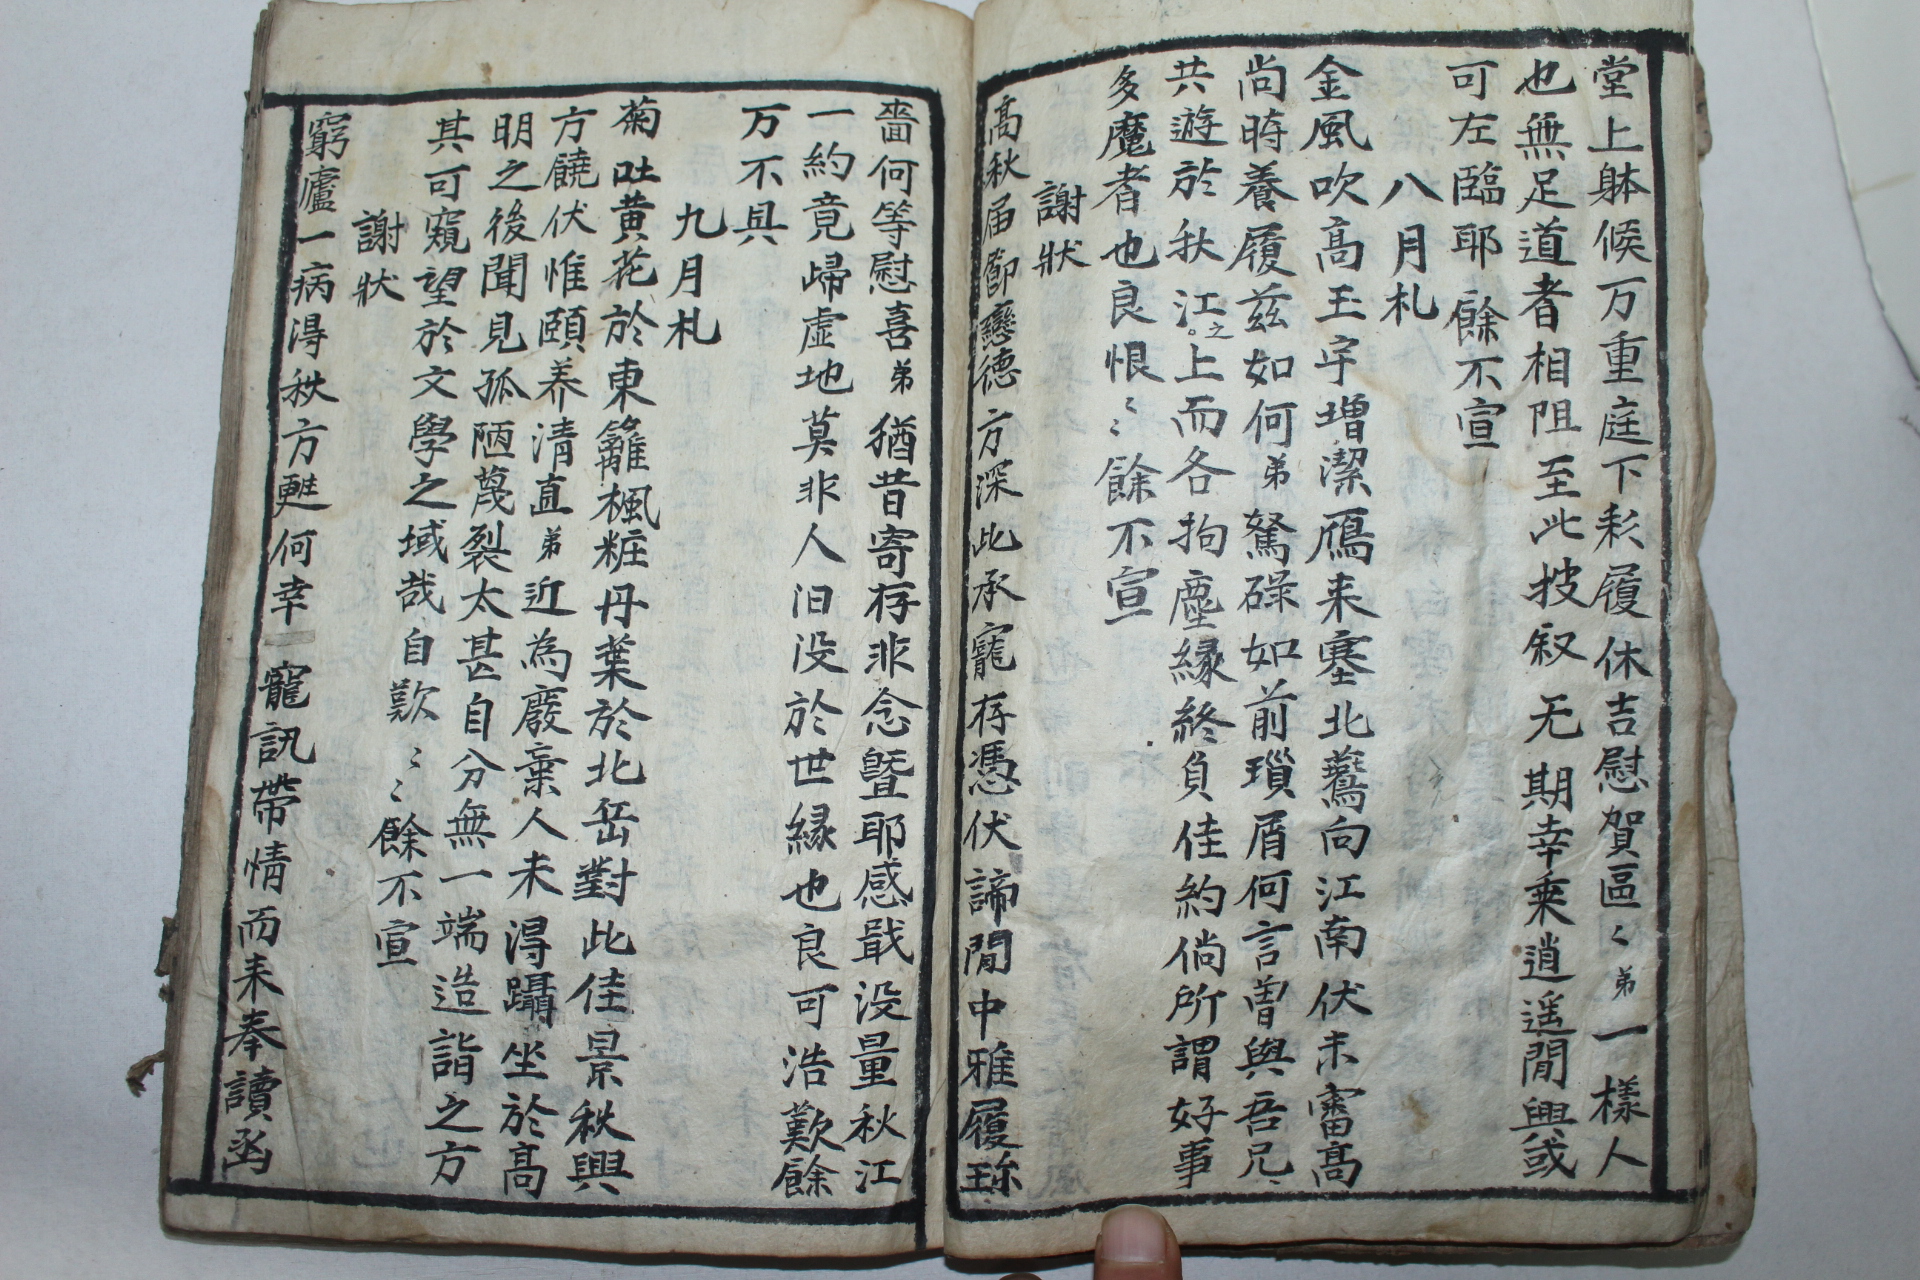 堂上體候万重庭下彩履休吉慰賀區〻弟一樣人
也無足道者相阻至此披叙无期幸乘逍遥閒興或
可左臨耶餘不宣
八月札
金風吹高玉宇增潔鴈来塞北鷰向江南伏未審高
尚時養履茲如何弟駑碌如前瑣屑何言曽與吾兄
共遊於秋江之上而各拘塵緣終負佳約倘所謂好事
多魔者也良恨〻〻餘不宣
謝狀
高秋届節戀德方深此承寵存憑伏諦閒中雅履珎
嗇何等慰喜弟猶昔寄存非念曁耶感戢没量秋江
一約竟歸虚地莫非人汨没於世緣也良可浩歎餘
万不具
九月札
菊吐黄花於東籬楓粧丹葉於北岳對此佳景秋興
方饒伏惟頤养清直弟近為廢棄人未淂躡坐於高
明之後聞見孤陋蔑裂太甚自分無一端造詣之方
其可窺望於文學之域哉自歎〻〻餘不宣
謝狀
窮廬一病淂秋方甦何幸寵訊帶情而来奉讀函